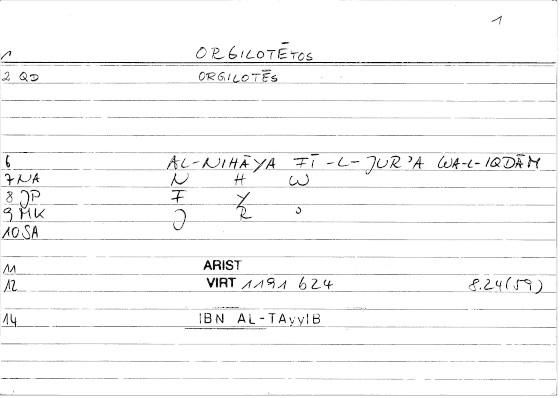 1
1 ORGILOTĒTOS
2 QD ORGILOTĒS
6 AL-NIHĀYA FĪ-L-JUR'A WA-L-IQDĀM
7 NA N H W
8 JP F Y
9 MK J R ʾ
10 SA
11 ARIST
12 VIRT 1191 b24 8.24(59)
14 IBN AL-TAyyIB